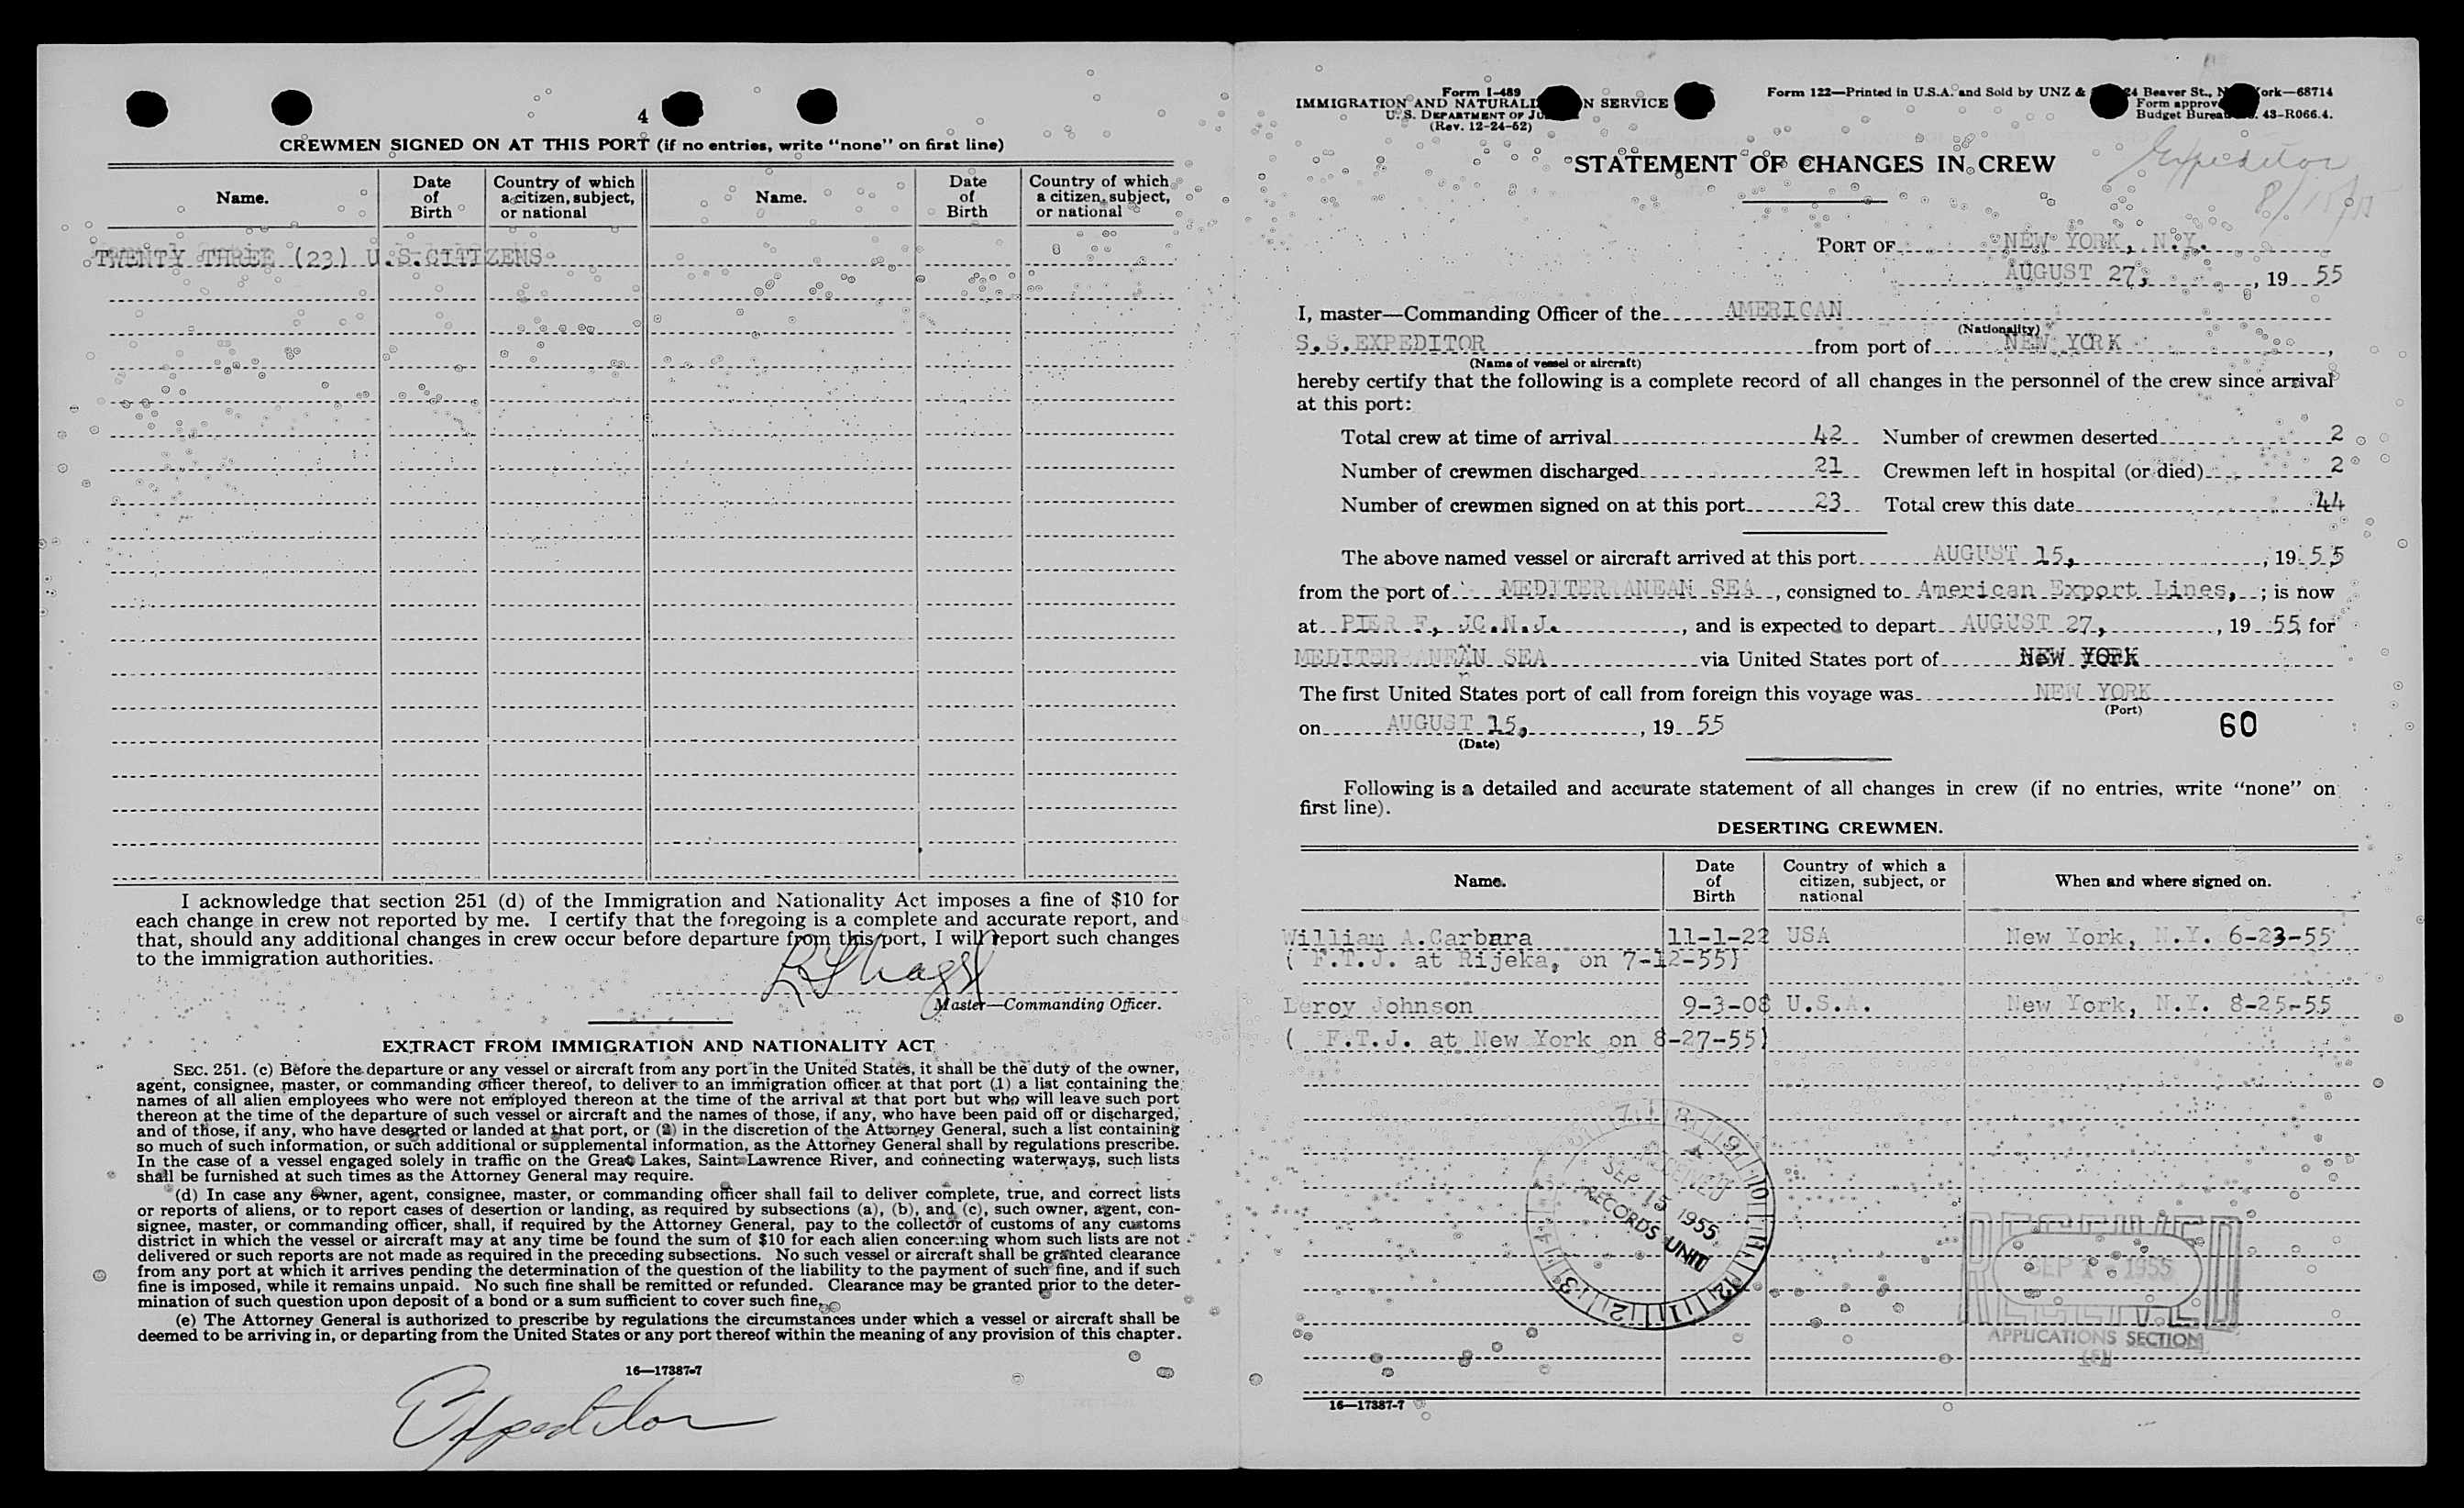 4
CREWMEN SIGNED ON AT THIS PORT (if no entries, write "none" on first line)
Name.
Date
of
Birth
Country of which
a citizen, subject,
or national
Name.
Date
of
Birth
Country of which
a citizen, subject,
or national
TWENTY THREE (23) U.S.CITIZENS
I acknowledge that section 251 (d) of the Immigration and Nationality Act imposes a fine of $10 for
each change in crew not reported by me. I certify that the foregoing is a complete and accurate report, and
that, should any additional changes in crew occur before departure from this port, I will report such changes
to the immigration authorities.
Master—Commanding Officer.
EXTRACT FROM IMMIGRATION AND NATIONALITY ACT
SEC. 251. (c) Before the departure or any vessel or aircraft from any port in the United States, it shall be the duty of the owner,
agent, consignee, master, or commanding officer thereof, to deliver to an immigration officer at that port (1) a list containing the
names of all alien employees who were not employed thereon at the time of the arrival at that port but who will leave such port
thereon at the time of the departure of such vessel or aircraft and the names of those, if any, who have been paid off or discharged,
and of those, if any, who have deserted or landed at that port, or (2) in the discretion of the Attorney General, such a list containing
so much of such information, or such additional or supplemental information, as the Attorney General shall by regulations prescribe.
In the case of a vessel engaged solely in traffic on the Great Lakes, Saint Lawrence River, and connecting waterways, such lists
shall be furnished at such times as the Attorney General may require.
(d) In case any owner, agent, consignee, master, or commanding officer shall fail to deliver complete, true, and correct lists
or reports of aliens, or to report cases of desertion or landing, as required by subsections (a), (b), and (c), such owner, agent, con-
signee, master, or commanding officer, shall, if required by the Attorney General, pay to the collector of customs of any customs
district in which the vessel or aircraft may at any time be found the sum of $10 for each alien concerning whom such lists are not
delivered or such reports are not made as required in the preceding subsections. No such vessel or aircraft shall be granted clearance
from any port at which it arrives pending the determination of the question of the liability to the payment of such fine, and if such
fine is imposed, while it remains unpaid. No such fine shall be remitted or refunded. Clearance may be granted prior to the deter-
mination of such question upon deposit of a bond or a sum sufficient to cover such fine.
(e) The Attorney General is authorized to prescribe by regulations the circumstances under which a vessel or aircraft shall be
deemed to be arriving in, or departing from the United States or any port thereof within the meaning of any provision of this chapter.
16—17387-7
Expeditor
Form I-489
IMMIGRATION AND NATURALI N SERVICE
U. S. DEPARTMENT OF JU
(Rev. 12-24-52)
Form 122—Printed in U.S.A. and Sold by UNZ & 24 Beaver St., N ork—68714
Form approv
Budget Bureau 43-R066.4.
Expeditor
STATEMENT OF CHANGES IN CREW
PORT OF NEW YORK, N.Y.
AUGUST 27, , 19 55
I, master—Commanding Officer of the AMERICAN
(Nationality)
S.S.EXPEDITOR from port of NEW YORK ,
(Name of vessel or aircraft)
hereby certify that the following is a complete record of all changes in the personnel of the crew since arrival
at this port:
Total crew at time of arrival 42 Number of crewmen deserted 2
Number of crewmen discharged 21 Crewmen left in hospital (or died) 2
Number of crewmen signed on at this port 23 Total crew this date 44
The above named vessel or aircraft arrived at this port AUGUST 15, , 19 55
from the port of MEDITERRANEAN SEA , consigned to American Export Lines, ; is now
at PIER F, JC.N.J. , and is expected to depart AUGUST 27, , 19 55, for
MEDITERRANEAN SEA via United States port of NEW YORK
The first United States port of call from foreign this voyage was NEW YORK
(Port)
on AUGUST 15, , 19 55
(Date)
60
Following is a detailed and accurate statement of all changes in crew (if no entries, write "none" on
first line).
DESERTING CREWMEN.
Name.
Date
of
Birth
Country of which a
citizen, subject, or
national
When and where signed on.
William A.Carbara 11-1-22 USA New York, N.Y. 6-23-55
( F.T.J. at Rijeka, on 7-12-55)
Leroy Johnson 9-3-08 U.S.A. New York, N.Y. 8-25-55
( F.T.J. at New York on 8-27-55)
7 8 9 10 11 12 1 2 3 4
RECEIVED
SEP 15 1955
RECORDS UNIT
RECEIVED
SEP 1 1955
APPLICATIONS SECTION
16—17387-7